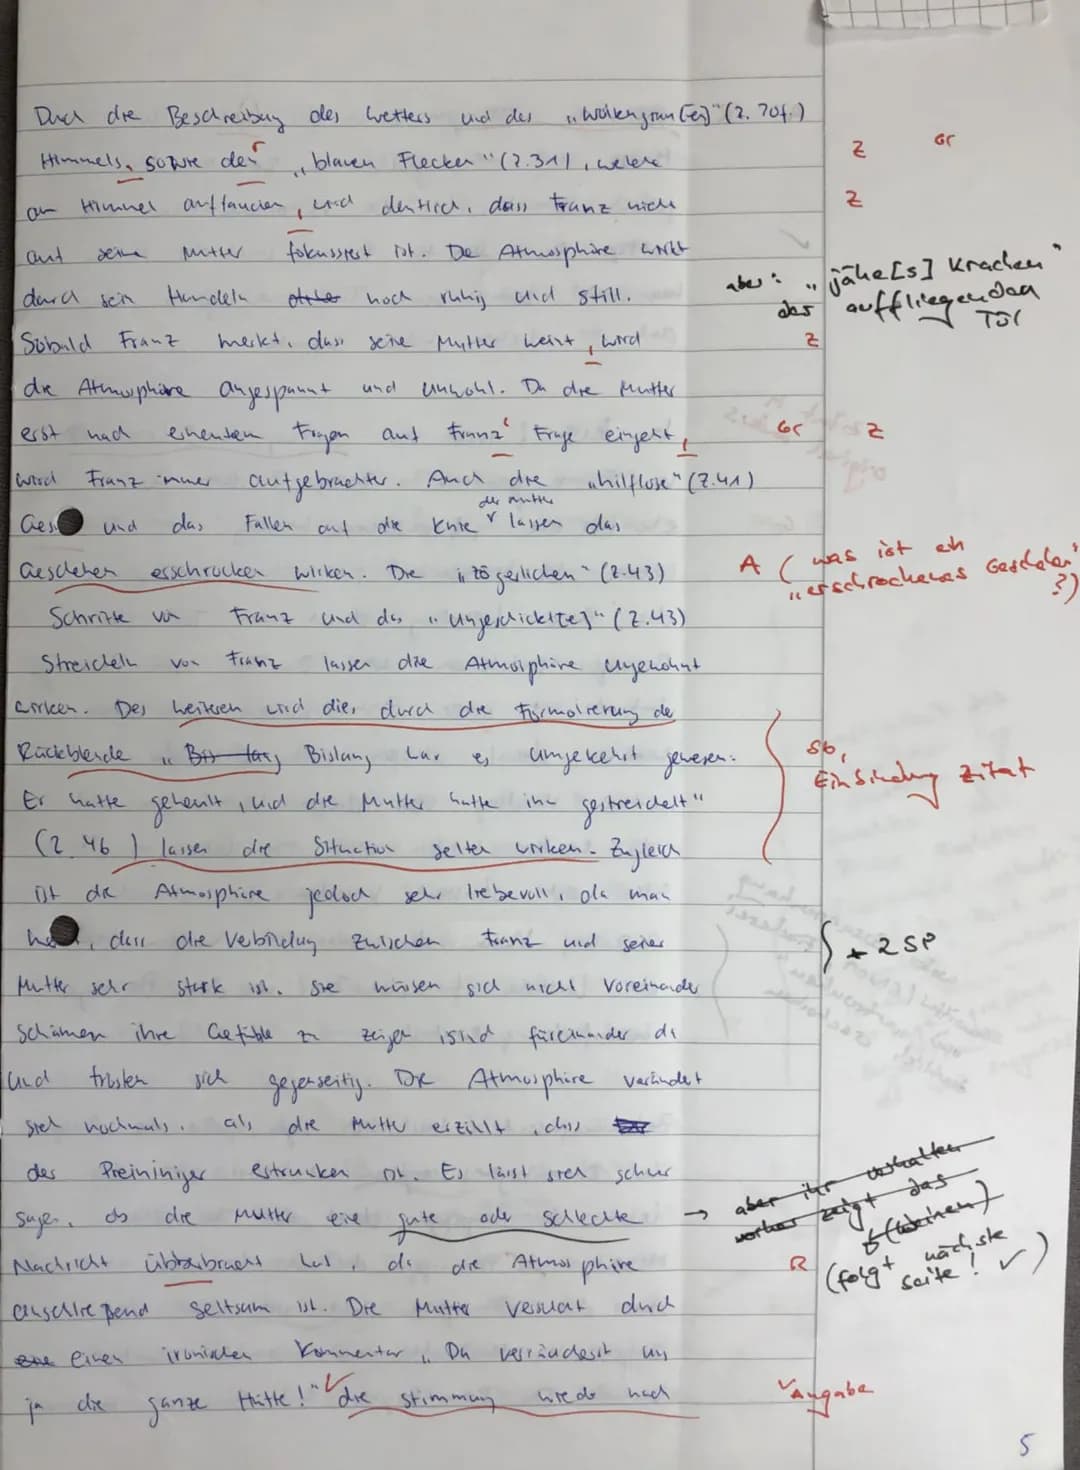 Durch die Beschreibung des Wetters und des „Wolkengrau[en]" (Z. 70f.)
Himmels, sowie der „blauen Flecken" (Z.31), welche
Z Gr
am Himmel auftauchen, wird deutlich, dass Franz nicht
Z
auf seine Mutter fokussiert ist. Die Atmosphäre wirkt
durch sein Handeln noch ruhig und still.
aber: „jähe[s] Krachen"
des auffliegenden
Tür
Sobald Franz merkt, dass seine Mutter weint, wird
Z
die Atmosphäre angespannt und unwohl. Da die Mutter
erst nach erneutem Fragen auf Franz' Frage eingeht,
Gr Z
wird Franz immer aufgebrachter. Auch die „hilflose" (Z.41)
der Mutter
und das Fallen auf die Knie lassen das
Geschehen erschrocken wirken. Die „zögerlichen" (Z.43)
A (was ist ein
„erschrockenes Geschehen"
?)
Schritte von Franz und das „ungeschickt[e]" (Z.43)
Streicheln von Franz lassen die Atmosphäre ungewohnt
wirken. Des weiteren wird dies durch die Formulierung der
Rückblende „Bis lang Bislang war es umgekehrt gewesen:
Sb,
Einbindung Zitat
Er hatte geheult, und die Mutter hatte ihn gestreichelt"
(Z. 46) lassen die Situation selten wirken. Zugleich
ist die Atmosphäre jedoch sehr liebevoll, da man
, dass die Verbindung zwischen Franz und seiner
+ 2 SP
Mutter sehr stark ist. Sie müssen sich nicht voreinander
schämen ihre Gefühle zu zeigen, sind füreinander da
und trösten sich gegenseitig. Die Atmosphäre verändert
sich nochmals, als die Mutter erzählt, dass
der Preininiger ertrunken ist. Es lässt sich schwer
sagen, ob die Mutter eine gute oder schlechte
→ aber ihr verhalten
vorher zeigt das
(weinen)
Nachricht übberbracht hat, da die Atmosphäre
R
(folgt nächste
seite! ✓)
anschließend seltsam ist. Die Mutter versucht durch
eine einen ironischen Kommentar „Du verräucherst uns
ja die ganze Hütte!" die Stimmung wieder nach
√Angabe
5